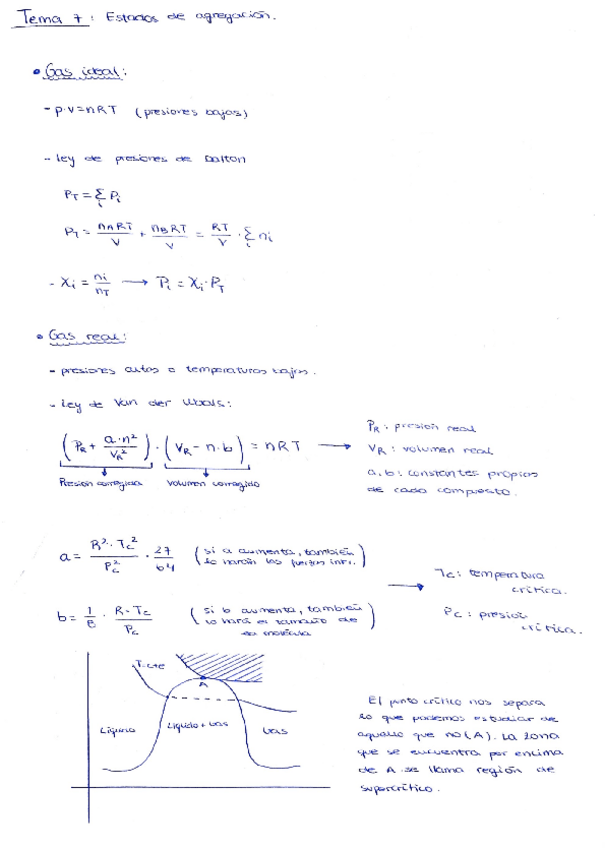 Tema 7: Estados de agregación.
• Gas ideal:
- p·v=nRT (presiones bajas)
- Ley de presiones de Dalton
P_T = Σ_i P_i
P_T = n_A RT/V + n_B RT/V = RT/V · Σ_i n_i
- X_i = n_i/n_T → P_i = X_i · P_T
• Gas real:
- presiones altas o temperaturas bajas.
- Ley de Van der Waals:
(P_R + a·n²/V_R²) · (V_R - n·b) = nRT →
Presión corregida
volumen corregido
P_R: presión real
V_R: volumen real
a, b: constantes propias
de cada compuesto.
a = R²·T_c²/P_c² · 27/64 (si a aumenta, también
lo harán las fuerzas intr.)
b = 1/8 · R·T_c/P_c (si b aumenta, también
lo hará el tamaño de
la molécula)
→ T_c: temperatura
crítica.
P_c: presión
crítica.
T=cte
A
Líquido
Líquido+Gas
Gas
El punto crítico nos separa
lo que podemos estudiar de
aquello que no (A). La zona
que se encuentra por encima
de A se llama región de
supercrítico.